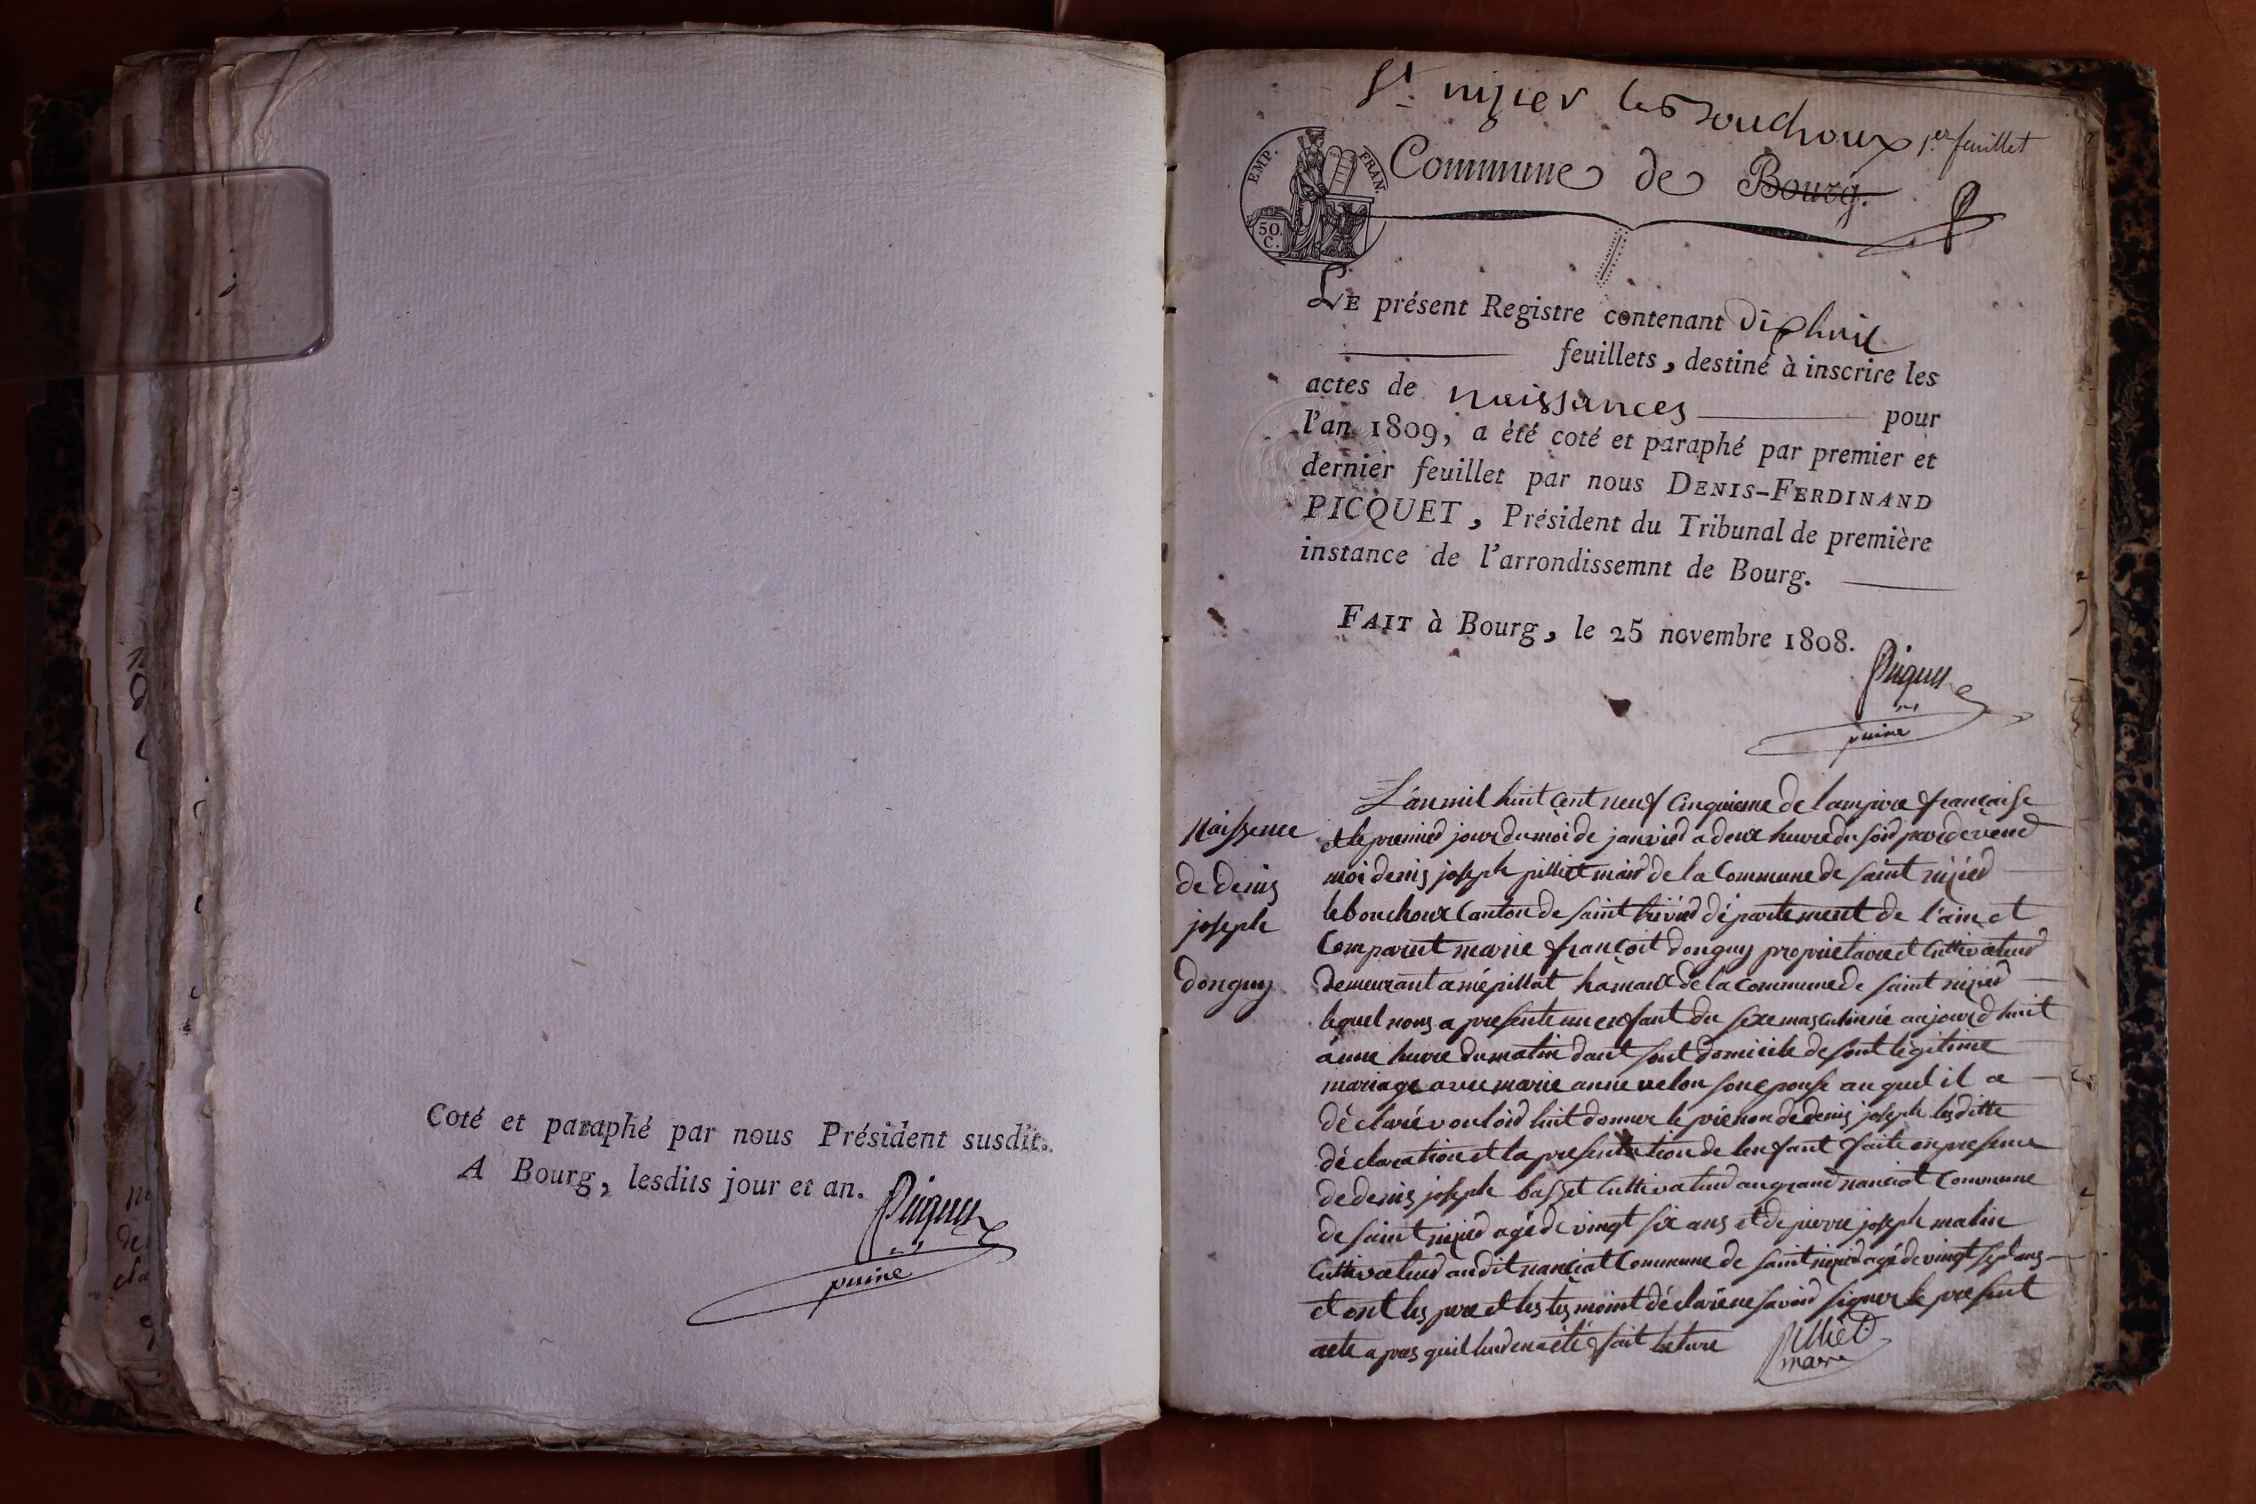 Coté et paraphé par nous Président susdit.
A Bourg, lesdits jour et an.
Picquet
puiné
St. nizier le Bouchoux
1.er feuillet
EMP. FRAN.
50. C.
Commune de Bourg.
LE présent Registre contenant dixhuit
feuillets, destiné à inscrire les
actes de naissances pour
l'an 1809, a été coté et paraphé par premier et
dernier feuillet par nous DENIS-FERDINAND
PICQUET, Président du Tribunal de première
instance de l'arrondissemnt de Bourg.
FAIT à Bourg, le 25 novembre 1808.
Picquet
puiné
Naissence
de denis
joseph
donguy
L'an mil huit cent neuf cinquieme de lampire francaise
et le premier jour du moi de janvier a deux heure du soir pardevend
moi denis joseph pilliet maire de la Commune de saint nizier
le bouchoux Canton de saint trivier département de l'ain et
Comparut marie francoit donguy proprietaire et Cultivateur
demeurant a mépillat hamaux de la Commune de saint nizier
lequel nous a presente un enfant du sexe masculin né aujourd huit
a une heure du matin dant sont domicile de sont légitime
mariage avec marie anne velon son epouse au quel il a
déclaré vouloir luit donner le prénon de denis joseph lesditte
déclaration et la presentation de lenfant faite en presence
de denis joseph basset Cultivateur au grand nanciat Commune
de saint nizier agé de vingt six ans et de pierre joseph matin
Cultivateur audit nanciat Commune de saint nizier agé de vingt sept ans
et ont les pere et les tesmoint déclaré ne savoir signer le present
acte apres quil leur en a été fait lecture
pilliet
maire